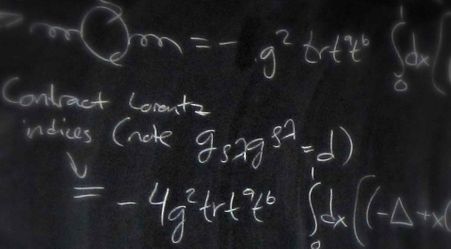 = - g² tr tᵃtᵇ ∫₀¹ dx (
Contract Lorentz
indices (note g_{ρλ}g^{ρλ} = d)
= -4g² tr tᵃtᵇ ∫₀¹ dx ((-Δ+x(